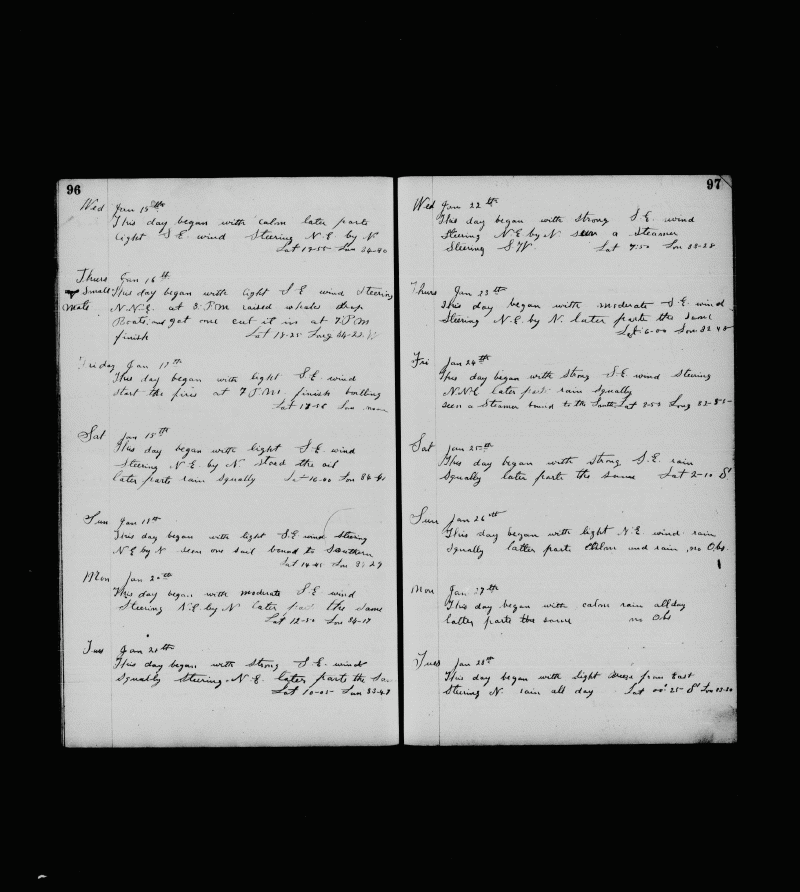 96
Wed Jan 15th
This day began with calm later parts
light S.E. wind Steering N E by N
Lat 19-55 Lon 34-40
Thurs Jan 16th
Small This day began with light S E wind Steering
Mate N.N.E. at 3 P.M raised whales drop
Boats and got one cut it in at 7 P.M
finish Lat 18-25 Long 34-23 W
Friday Jan 17th
This day began with light S.E. wind
start the fires at 7 P.M finish boilling
Lat 17-56 Lon
Sat Jan 18th
This day began with light S.E. wind
Steering N E by N Stood the oil
later parts rain Squally Lat 16-40 Lon 34-41
Sun Jan 19th
This day began with light S.E wind Steering
N E by N seen one sail bound to Southern
Lat 14-41 Lon 33-29
Mon Jan 20th
This day began with moderate S.E wind
Steering N.E by N later part the same
Lat 12-50 Lon 34-17
Tues Jan 21th
This day began with Strong S.E. wind
Squally Steering N.E. later parts the
Lat 10-05 Lon 33-48
97
Wed Jan 22th
This day began with strong S.E. wind
Steering N.E by N seen a steamer
Steering S.W. Lat 7-50 Lon 33-28
Thurs Jan 23th
This day began with moderate S.E. wind
Steering N.E by N. later parts the same
Lat 6-00 Lon 32
Fri Jan 24th
This day began with strong S.E. wind Steering
N.N.E later part rain Squally
seen a Steamer bound to the Lat 3-50 Long 32-55
Sat Jan 25th
This day began with strong S.E. rain
Squally later parts the same Lat 2-10 S
Sun Jan 26th
This day began with light N.E. wind rain
Squally latter parts Calm and rain no Obs.
Mon Jan 27th
This day began with calms rain all day
latter parts the same no Obs
Tues Jan 28th
This day began with light from East
Steering N. rain all day Lat 00-25 S Lon 32-30